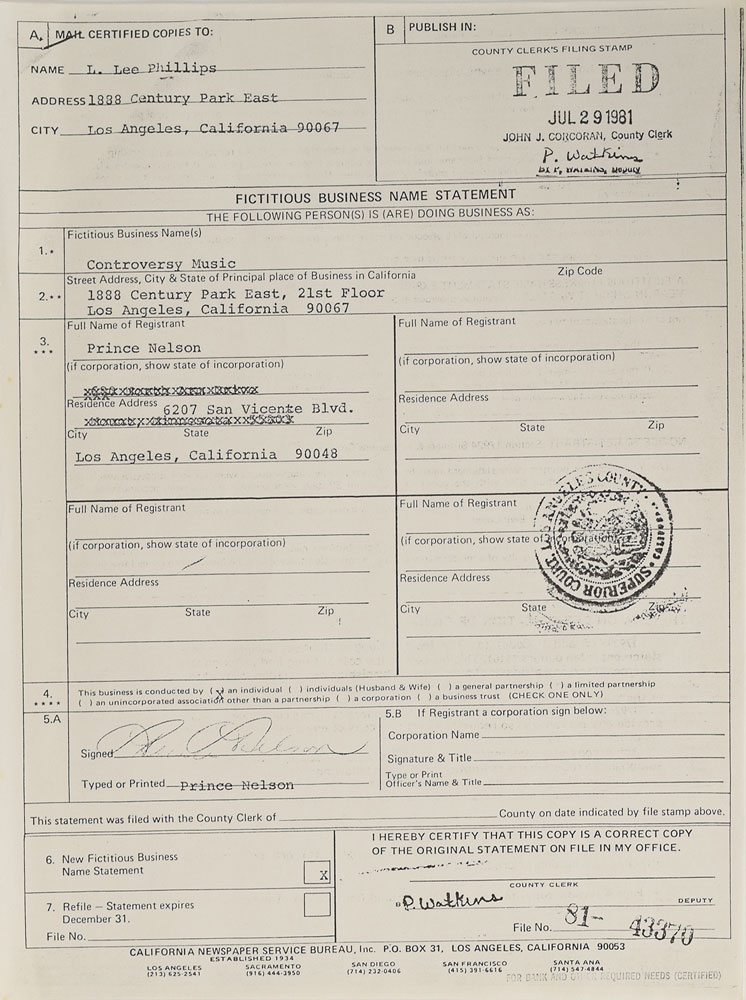 A. MAIL CERTIFIED COPIES TO:
NAME L. Lee Phillips
ADDRESS 1888 Century Park East
CITY Los Angeles, California 90067
B PUBLISH IN:
COUNTY CLERK'S FILING STAMP
FILED
JUL 29 1981
JOHN J. CORCORAN, County Clerk
P. Watkins
FICTITIOUS BUSINESS NAME STATEMENT
THE FOLLOWING PERSON(S) IS (ARE) DOING BUSINESS AS:
1.* Fictitious Business Name(s)
Controversy Music
2.** Street Address, City & State of Principal place of Business in California Zip Code
1888 Century Park East, 21st Floor
Los Angeles, California 90067
3. *** Full Name of Registrant
Prince Nelson
(if corporation, show state of incorporation)
Residence Address 6207 San Vicente Blvd.
City State Zip
Los Angeles, California 90048
Full Name of Registrant
(if corporation, show state of incorporation)
Residence Address
City State Zip
Full Name of Registrant
(if corporation, show state of incorporation)
Residence Address
City State Zip
Full Name of Registrant
(if corporation, show state of incorporation)
Residence Address
City State Zip
SUPERIOR COURT, LOS ANGELES COUNTY CALIF
4. **** This business is conducted by (x) an individual ( ) individuals (Husband & Wife) ( ) a general partnership ( ) a limited partnership
( ) an unincorporated association other than a partnership ( ) a corporation ( ) a business trust (CHECK ONE ONLY)
5.A
Signed
Typed or Printed Prince Nelson
5.B If Registrant a corporation sign below:
Corporation Name
Signature & Title
Type or Print
Officer's Name & Title
This statement was filed with the County Clerk of County on date indicated by file stamp above.
6. New Fictitious Business
Name Statement X
7. Refile – Statement expires
December 31.
File No.
I HEREBY CERTIFY THAT THIS COPY IS A CORRECT COPY
OF THE ORIGINAL STATEMENT ON FILE IN MY OFFICE.
COUNTY CLERK
P. Watkins
DEPUTY
File No. 81- 43370
CALIFORNIA NEWSPAPER SERVICE BUREAU, Inc. P.O. BOX 31, LOS ANGELES, CALIFORNIA 90053
ESTABLISHED 1934
LOS ANGELES SACRAMENTO SAN DIEGO SAN FRANCISCO SANTA ANA
(213) 625-2541 (916) 444-3950 (714) 232-0406 (415) 391-6616 (714) 547-4844
FOR BANK AND OTHER REQUIRED NEEDS (CERTIFIED)